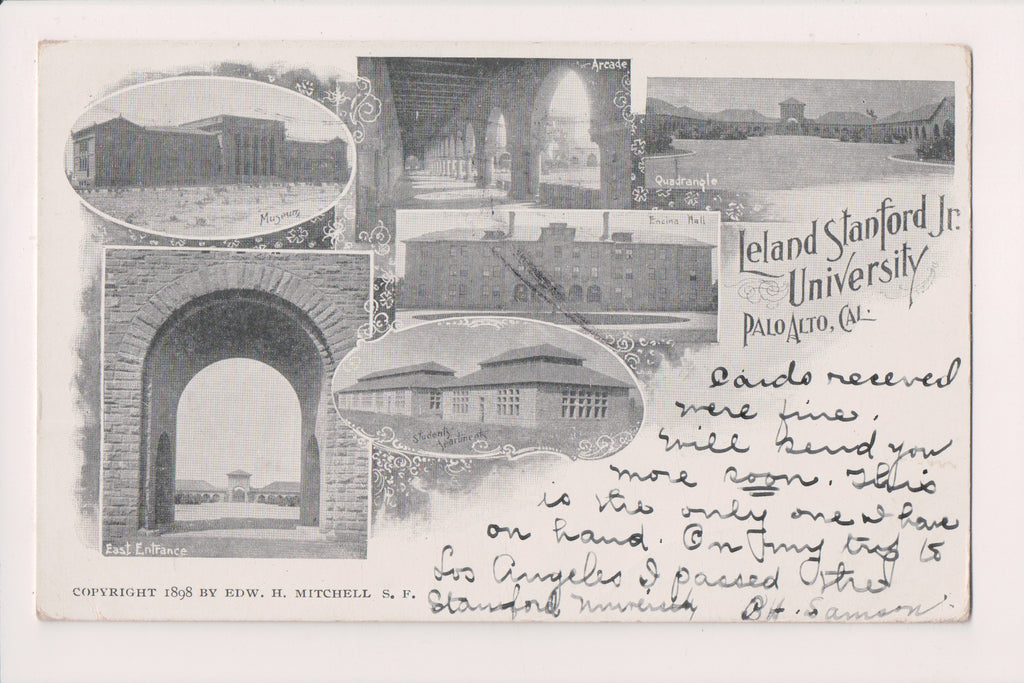 Arcade
Museum
Quadrangle
Encina Hall
Leland Stanford Jr.
University
PALO ALTO, CAL.
Students
Apartments
East Entrance
COPYRIGHT 1898 BY EDW. H. MITCHELL S. F.
Cards receved
were fine.
Will send you
more soon. This
is the only one I have
on hand. On my trip to
Los Angeles I passed the
Stanford University BH. Samson.